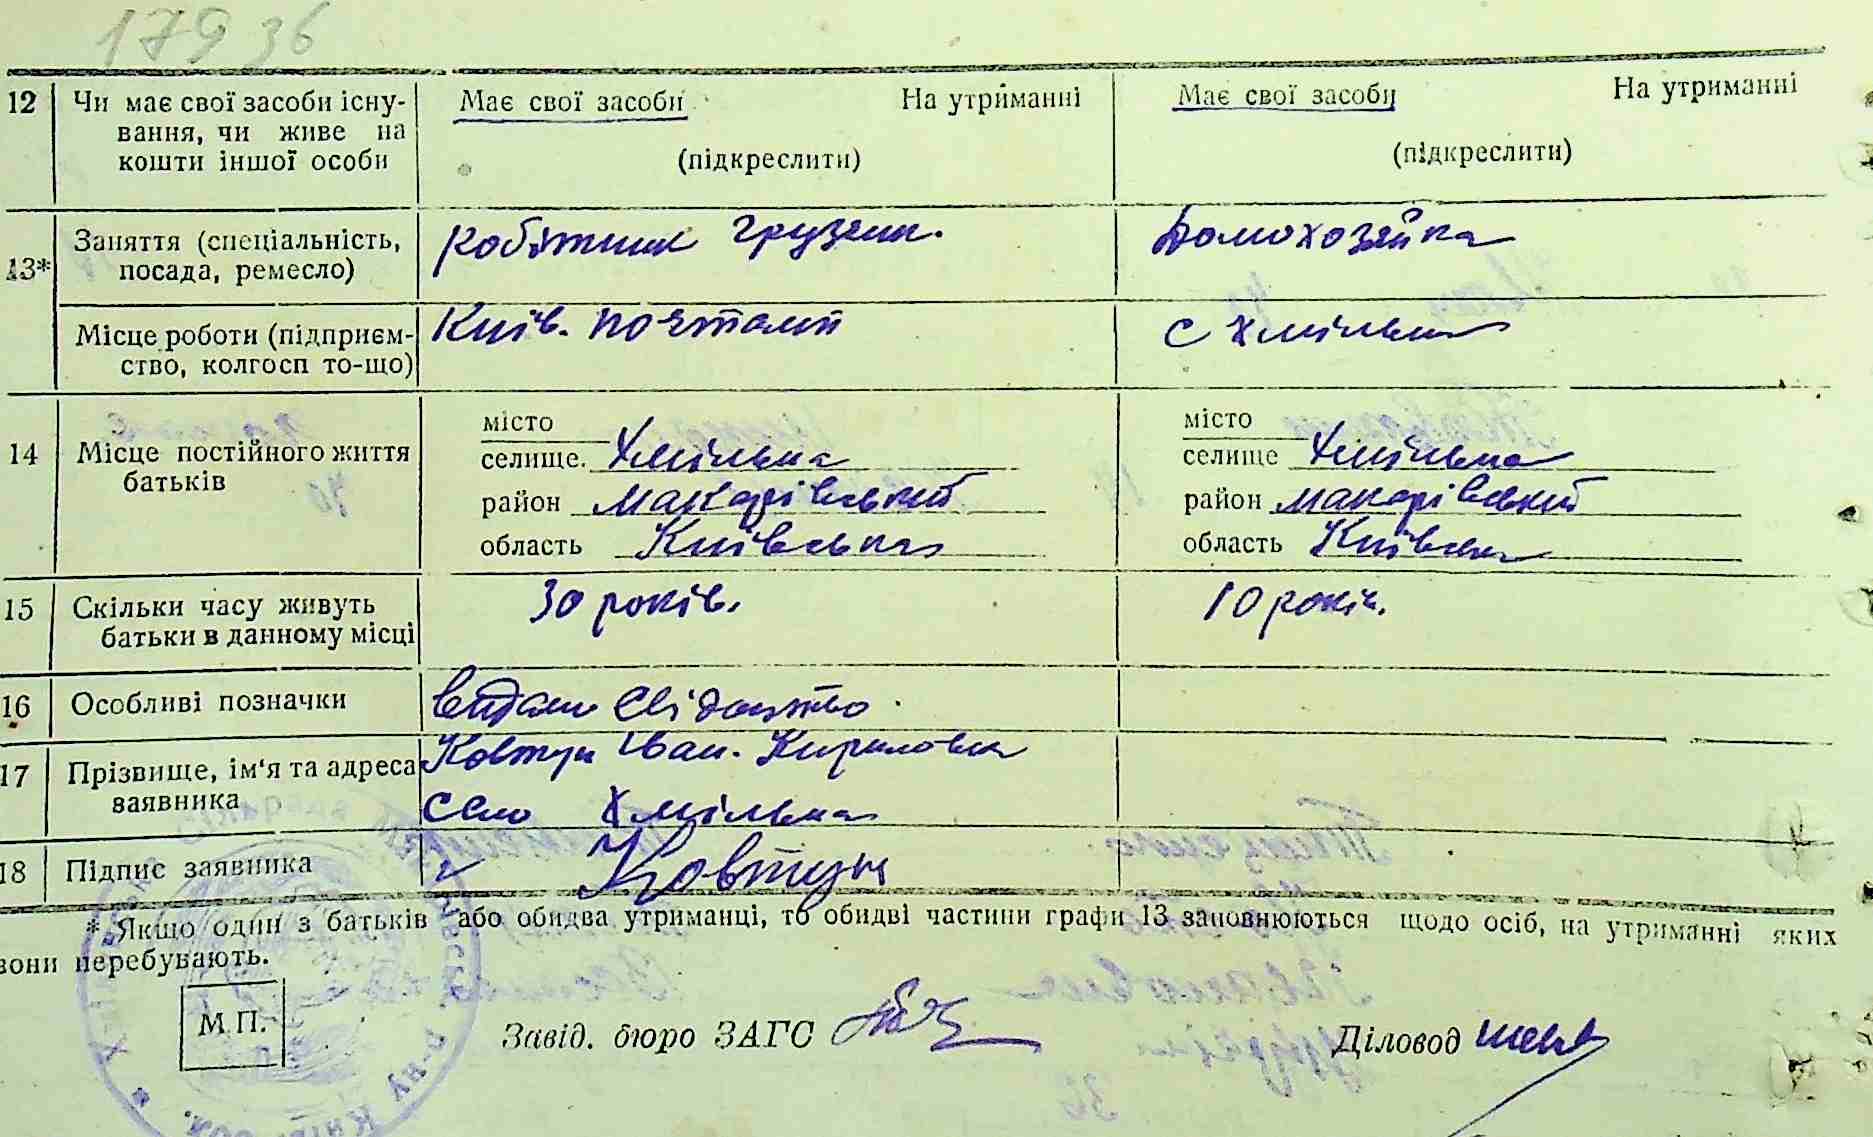 17936
12 Чи має свої засоби існу- Має свої засоби На утриманні Має свої засоби На утриманні
вання, чи живе на
кошти іншої особи (підкреслити) (підкреслити)
13* Заняття (спеціальність, робітник грузчик. Домохозяйка
посада, ремесло)
Місце роботи (підприєм- Київ. почтамт с Хмільна
ство, колгосп то-що)
14 Місце постійного життя місто місто
батьків селище. Хмільна селище Хмільна
район макарівський район макарівський
область Київська область Київська
15 Скільки часу живуть 30 років. 10 років.
батьки в данному місці
16 Особливі позначки видано свідоцтво
17 Прізвище, ім‘я та адреса Ковтун Іван. Кирилович
заявника село Хмільна
18 Підпис заявника Ковтун
* Якшо один з батьків або обидва утриманці, то обидві частини графи 13 заповнюються щодо осіб, на утриманні яких
вони перебувають.
М.П. Завід. бюро ЗАГС Діловод